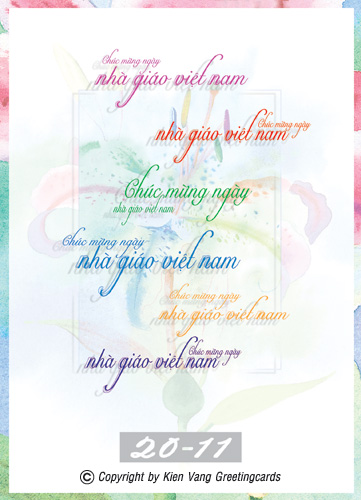 Chúc mừng ngày
nhà giáo việt nam
Chúc mừng ngày
nhà giáo việt nam
Chúc mừng ngày
nhà giáo việt nam
Chúc mừng ngày
nhà giáo việt nam
Chúc mừng ngày
nhà giáo việt nam
Chúc mừng ngày
nhà giáo việt nam
20-11
© Copyright by Kien Vang Greetingcards